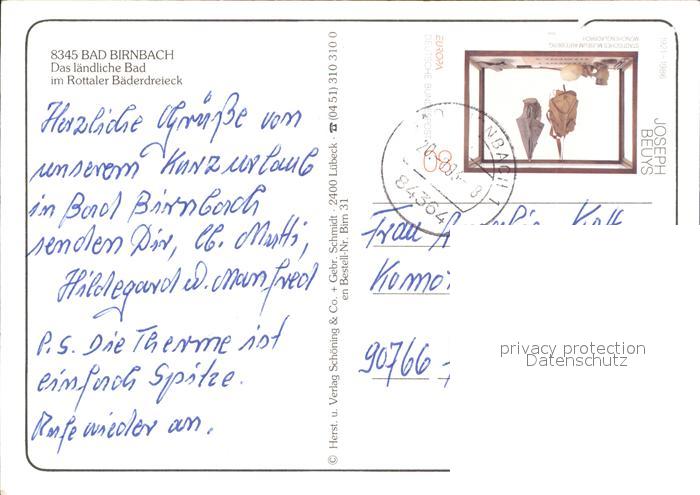 8345 BAD BIRNBACH
Das ländliche Bad
im Rottaler Bäderdreieck
Herzliche Grüße von
unserem Kurzurlaub
in Bad Birnbach
senden Dir, lb. Mutti,
Hildegard u. Manfred
P.S. Die Therme ist
einfach Spitze.
Rufe wieder an.
© Herst. u. Verlag Schöning & Co. + Gebr. Schmidt · 2400 Lübeck · ☎ (04 51) 310 310 0
en Bestell-Nr. Birn 31
EUROPA
DEUTSCHE BUNDESPOST
80
STÄDTISCHES MUSEUM ABTEIBERG
MÖNCHENGLADBACH
1921-1986
JOSEPH
BEUYS
NBACH 1
84364
Frau
90766
privacy protection
Datenschutz